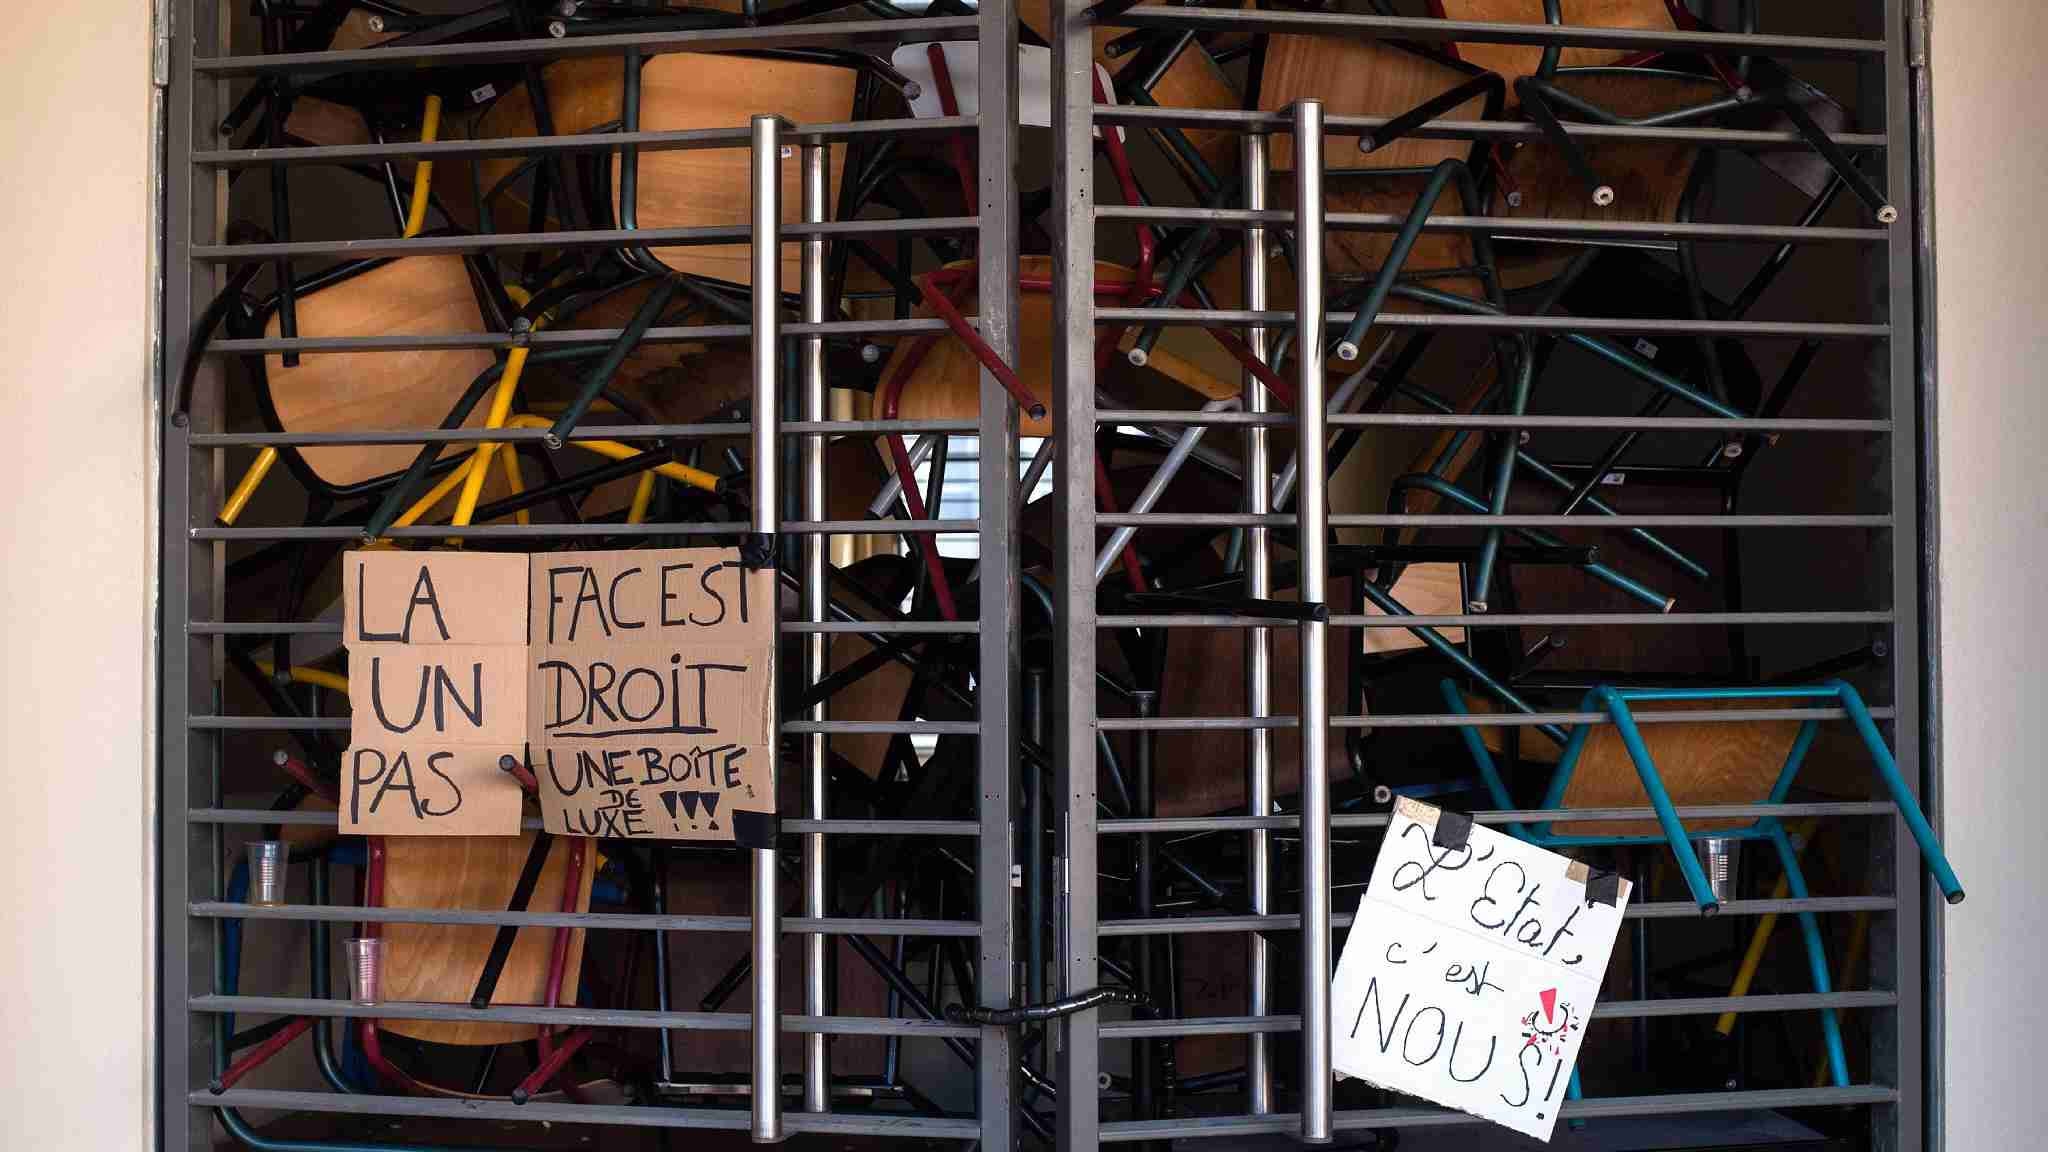 LA FAC EST
UN DROIT
PAS UNE BOÎTE
DE
LUXE !!!
L'Etat,
c'est
NOUS!